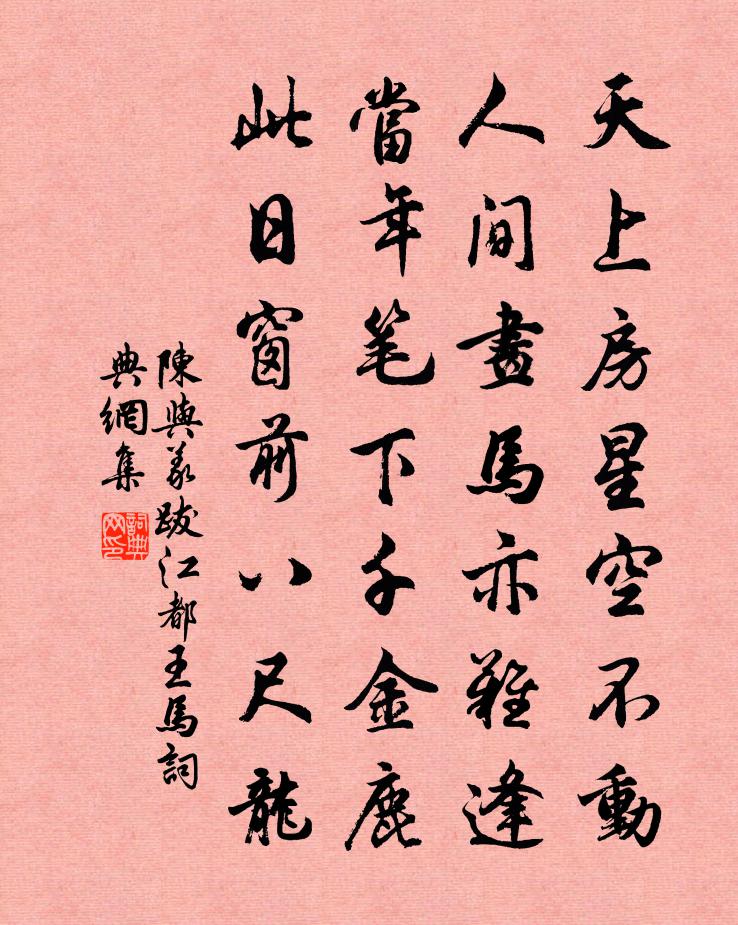 天上房星空不動
人間畫馬亦難逢
當年笔下千金鹿
此日窗前八尺龍
陳與義跋江都王馬詞
典網集
詞典网印